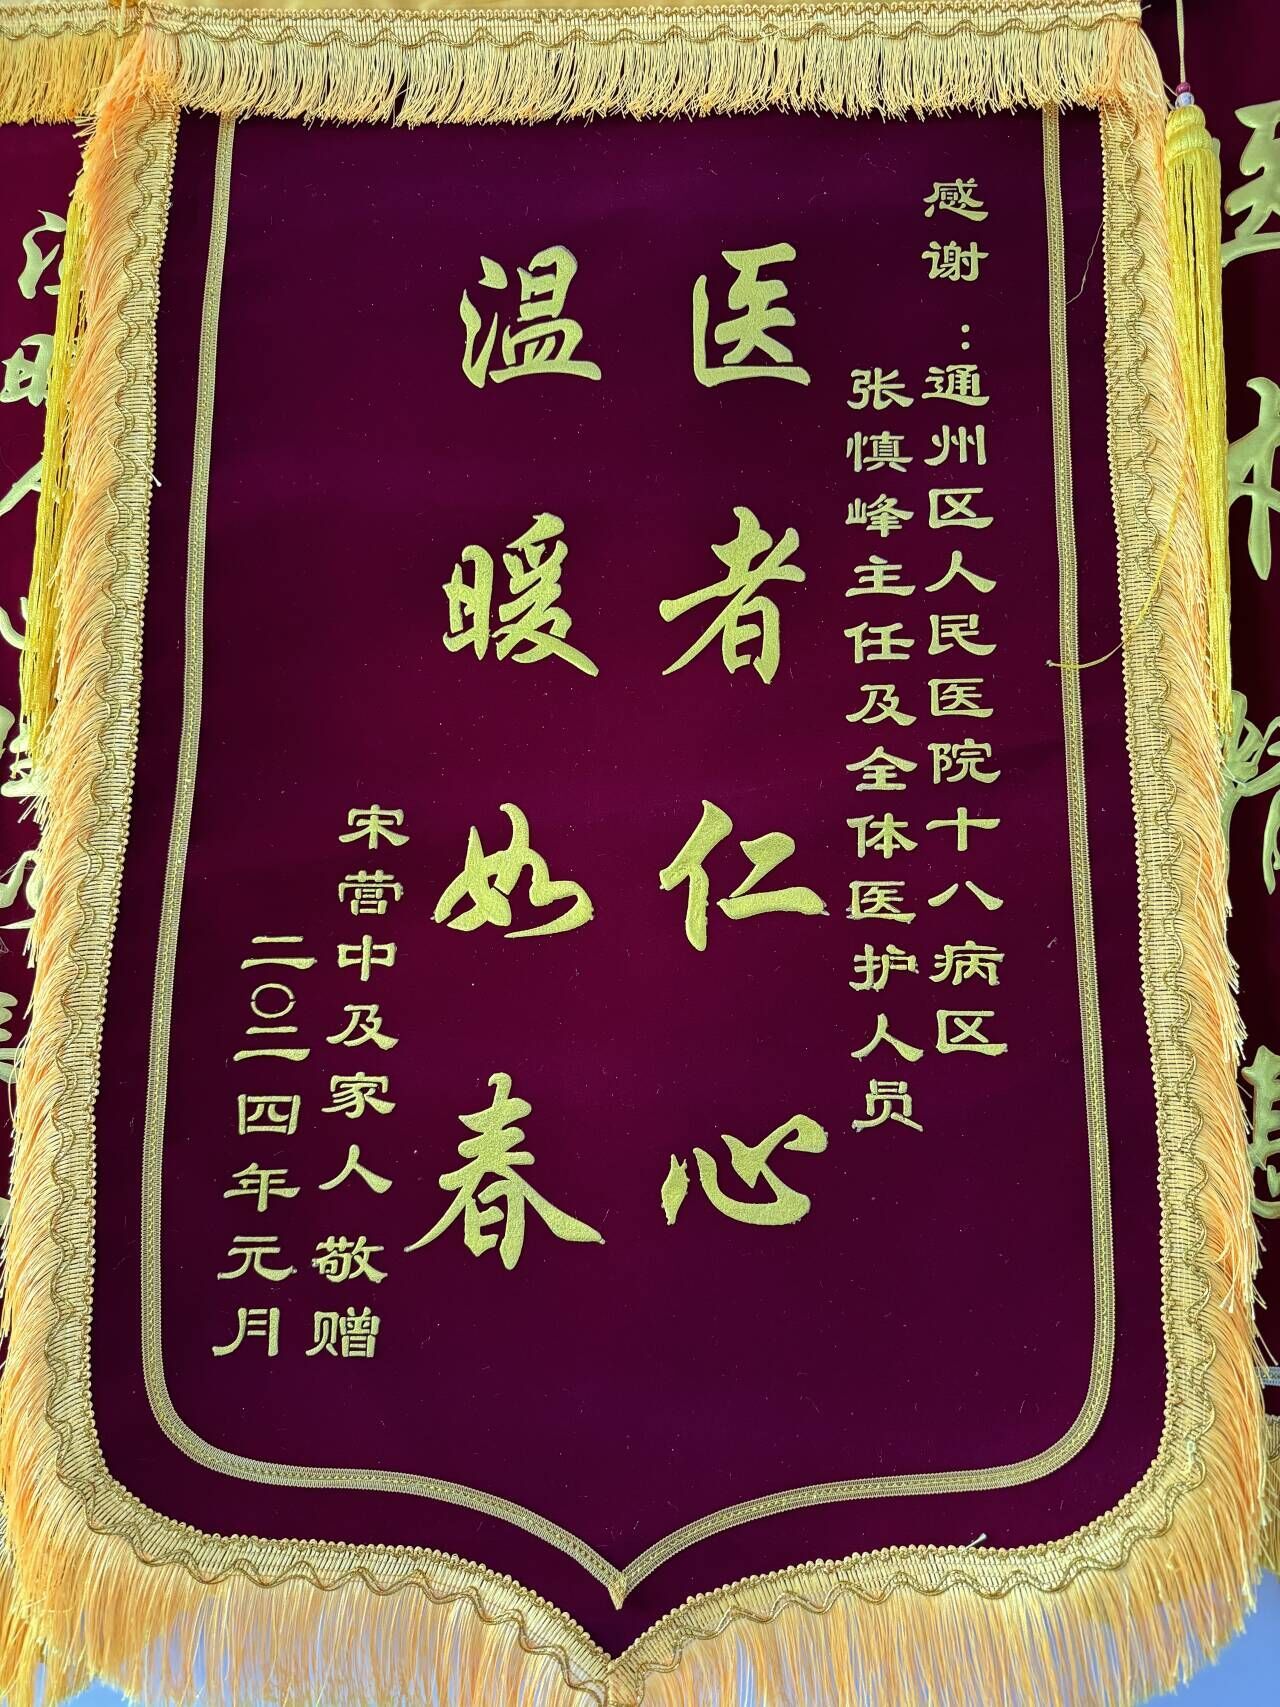 感谢：通州区人民医院十八病区
张慎峰主任及全体医护人员
医者仁心
温暖如春
宋营中及家人敬赠
二〇二四年元月